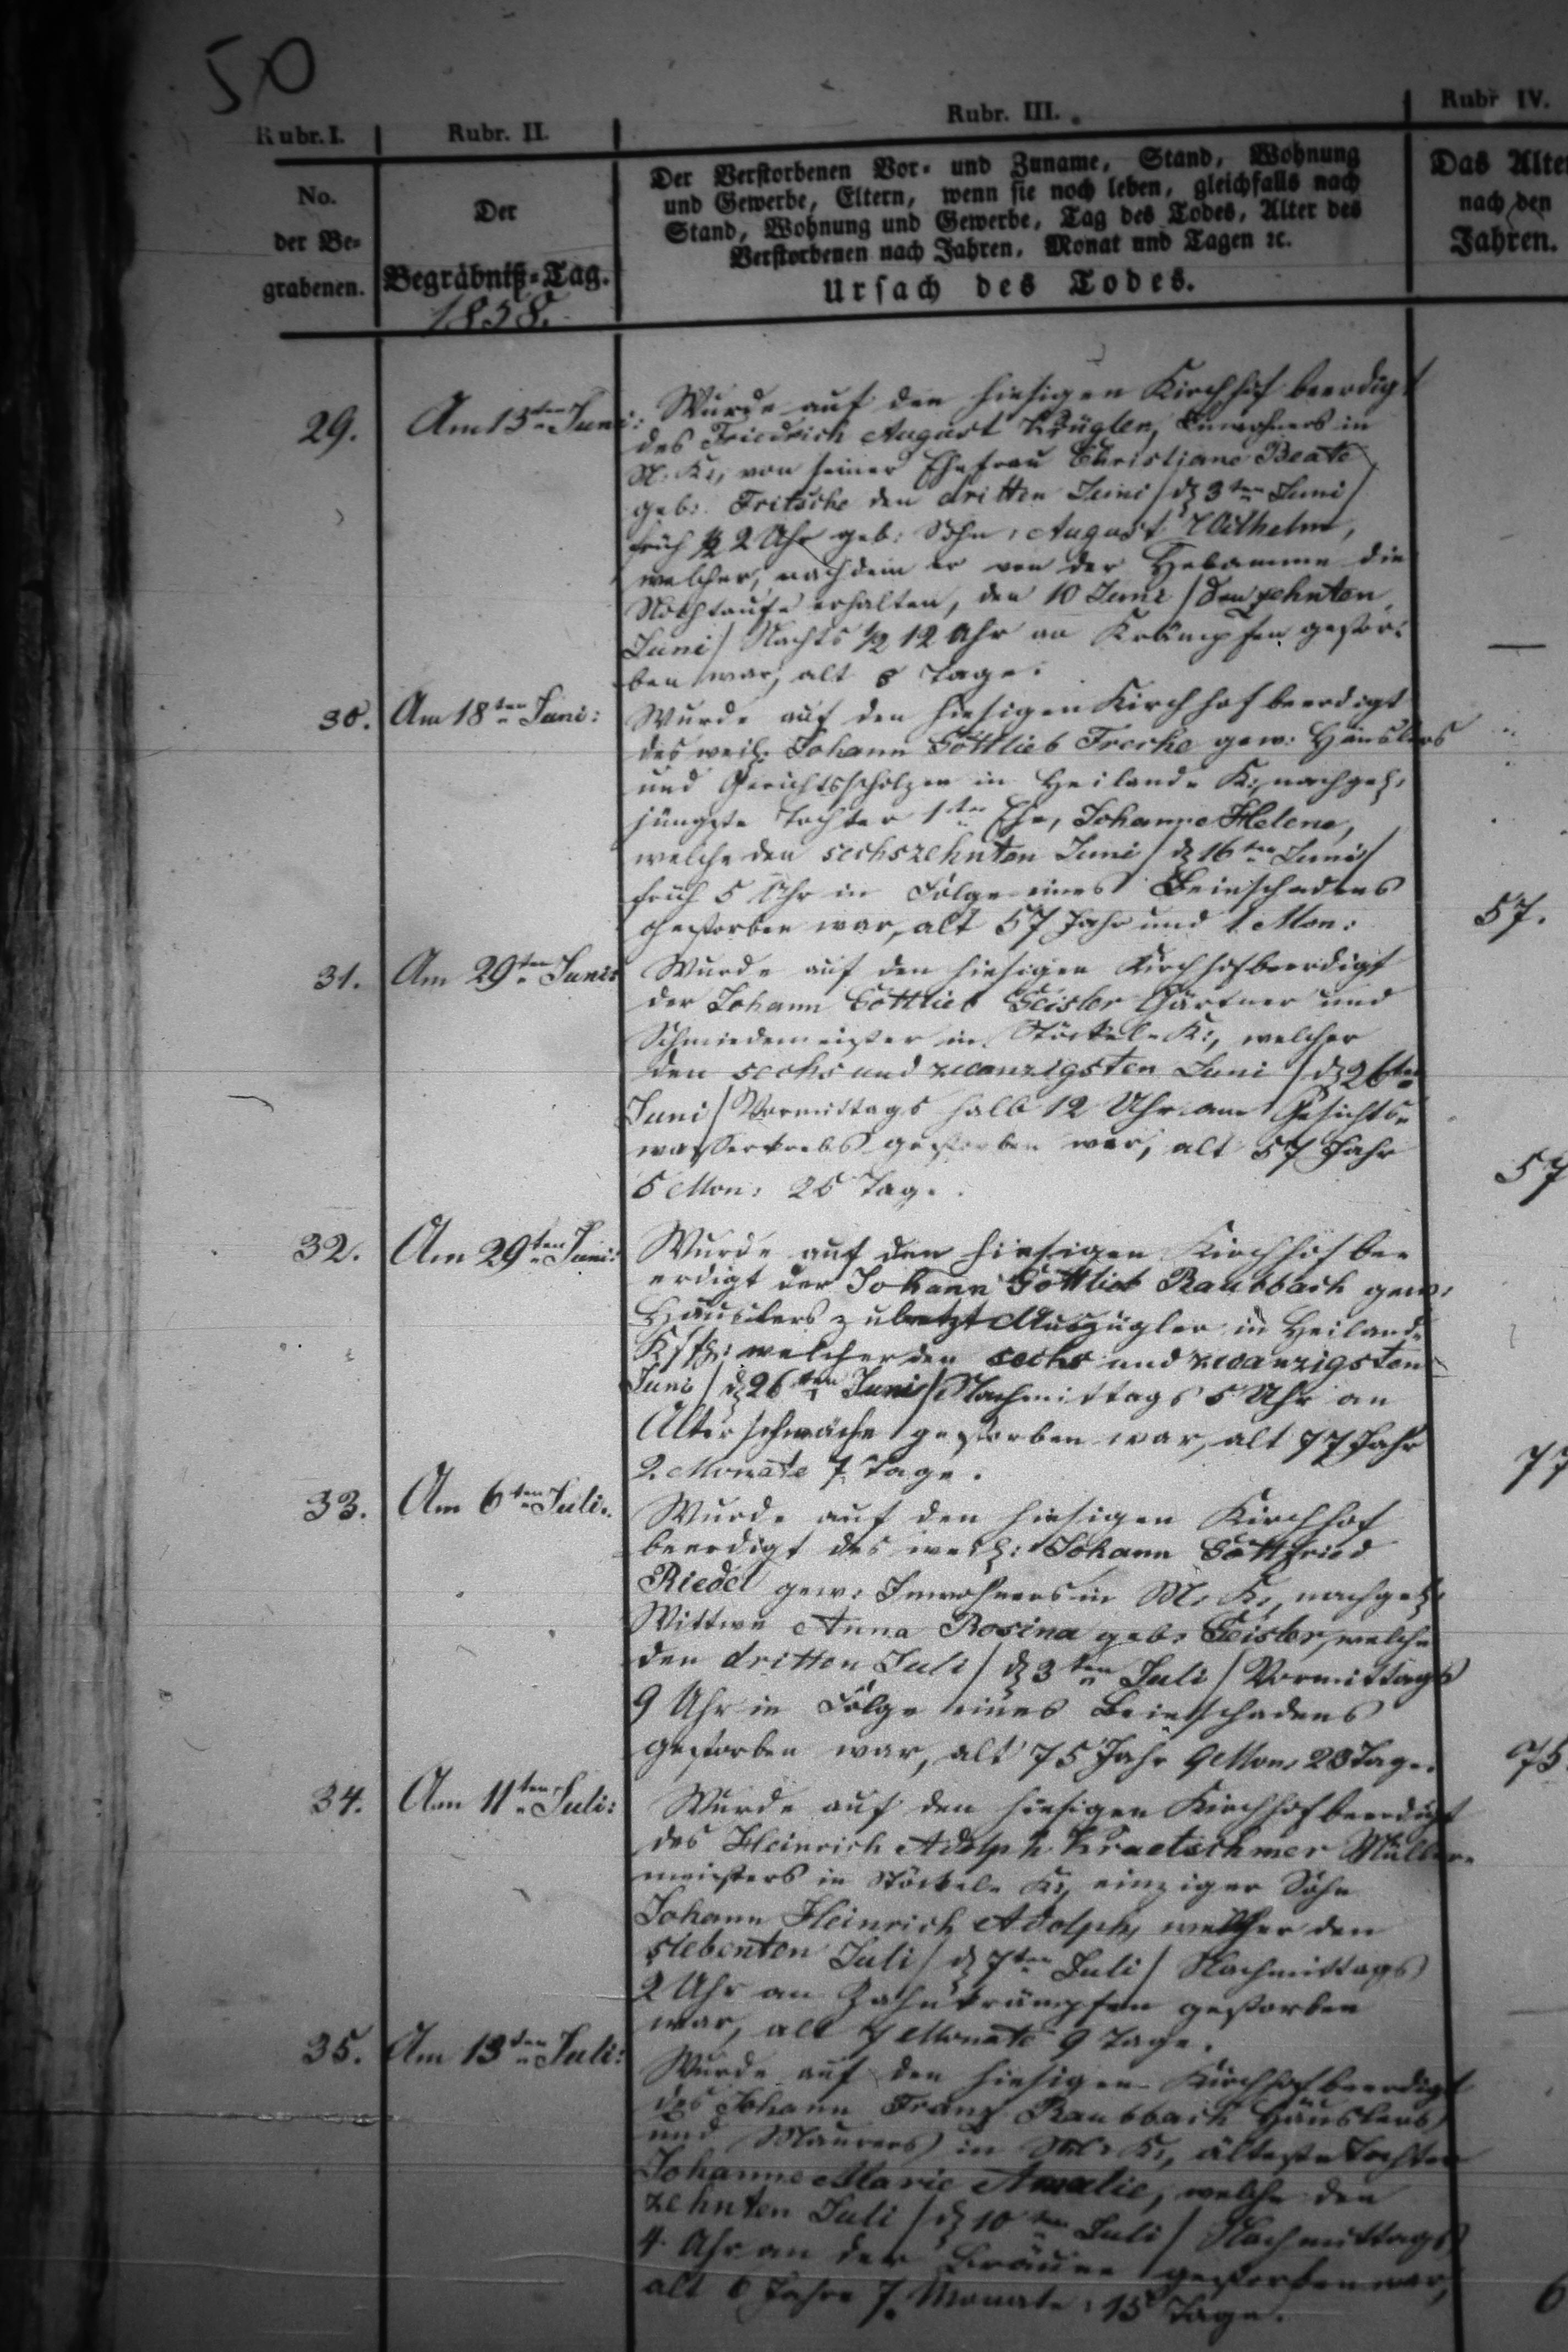 50
Rubr. I. Rubr. II. Rubr. III. Rubr IV.
No.
der Be-
grabenen.
Der
Begräbniß-Tag.
1858.
Der Verstorbenen Vor- und Zuname, Stand, Wohnung
und Gewerbe, Eltern, wenn sie noch leben, gleichfalls nach
Stand, Wohnung und Gewerbe, Tag des Todes, Alter des
Verstorbenen nach Jahren, Monat und Tagen ꝛc.
Ursach des Todes.
Das Alte
nach den
Jahren.
29. Am 13ten Juni: Wurde auf den hiesigen Kirchhof beerdigt
des Friedrich August Krügler, Inwohners in
N. K:, von seiner Ehefrau Christiane Beate
geb: Fritsche den dritten Juni / d 3ten Juni /
früh ½ 2 Uhr geb: Sohn, August Wilhelm,
welcher, nachdem er von der Hebamme die
Nothtaufe erhalten, den 10 Juni / den zehnten
Juni / Nachts ½ 12 Uhr an Krämpfen gestor-
ben war, alt 8 Tage.
30. Am 18ten Juni: Wurde auf den hiesigen Kirchhof beerdigt
des weil. Johann Gottlieb Frerke gew: Häuslers
und Gerichtsscholzen in Heilands K:, nachgel:
jüngste Tochter 1ter Ehe, Johanne Helene,
welche den sechszehnten Juni / d 16ten Juni /
früh 5 Uhr in Folge eines Beinschadens
gestorben war, alt 57 Jahr und 1 Mon:
57.
31. Am 29ten Juni: Wurde auf den hiesigen Kirchhof beerdigt
der Johann Gottlieb Geisler Gärtner und
Schmiedemeister in Stöckel-K:, welcher
den sechs und zwanzigsten Juni / d 26ten
Juni / Vormittags halb 12 Uhr am Gesichts-
wasserkrebs gestorben war, alt 57 Jahr
5 Mon: 25 Tage.
57
32. Am 29ten Juni: Wurde auf den hiesigen Kirchhof be-
erdigt der Johann Gottlieb Raubbach gew:
Häuslers zuletzt Auszügler in Heilands
welcher den sechs und zwanzigsten
Juni / d 26ten Juni / Nachmittags 5 Uhr an
Altersschwäche gestorben war, alt 77 Jahr
2 Monate 7 Tage.
77
33. Am 6ten Juli: Wurde auf den hiesigen Kirchhof
beerdigt des weil: Johann Gottfried
Riedel gew: Inwohners in M: K:, nachgel:
Wittwe Anna Rosina geb: Geisler, welche
den dritten Juli / d 3ten Juli / Vormittags
9 Uhr in Folge eines Beinschadens
gestorben war, alt 75 Jahr 9 Mon: 23 Tage.
75.
34. Am 11ten Juli: Wurde auf den hiesigen Kirchhof beerdigt
des Heinrich Adolph Kraetschmer Müller-
meisters in Stöckel-K:, einziger Sohn
Johann Heinrich Adolph, welcher den
siebenten Juli / d 7ten Juli / Nachmittags
2 Uhr an Zahnkrämpfen gestorben
war, alt 7 Monate 9 Tage.
35. Am 13ten Juli: Wurde auf den hiesigen Kirchhof beerdigt
des Johann Franz Raubbach Häuslers
und Maurers in K:, älteste Tochter
Johanne Marie Amalie, welche den
zehnten Juli / d 10ten Juli / Nachmittags
4 Uhr an der Bräune gestorben war,
alt 6 Jahre 7 Monate: 15 Tage.
6